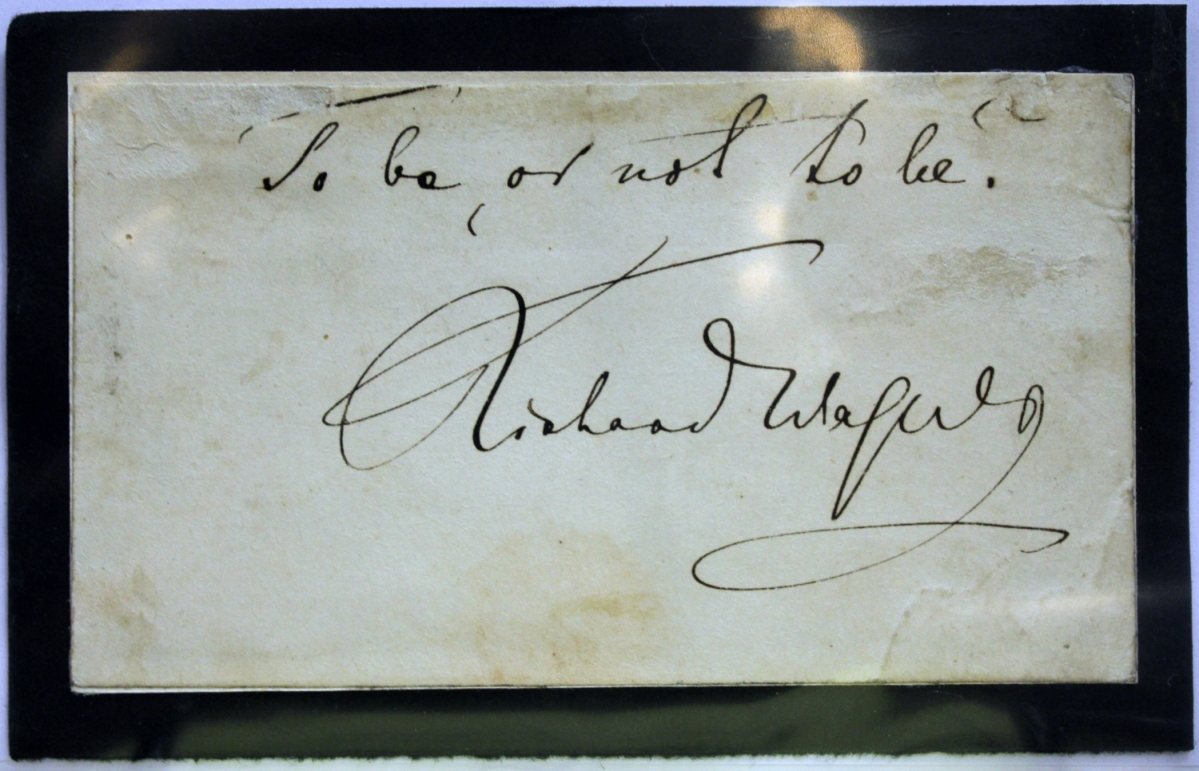 "To be, or not to be".
Richard Wagner